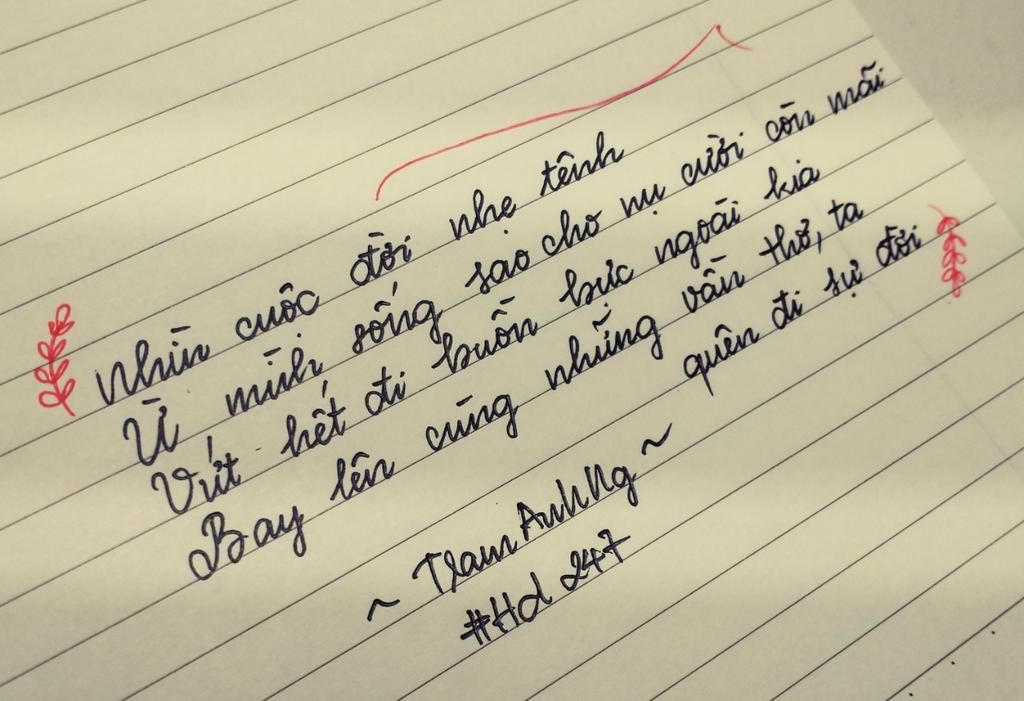 Nhìn cuộc đời nhẹ tênh
Ừ mình sống sao cho nụ cười còn mãi
Vứt hết đi buồn bực ngoài kia
Bay lên cùng những vần thơ, ta
quên đi sự đời
~ TramAnhNg ~
#Hd 247